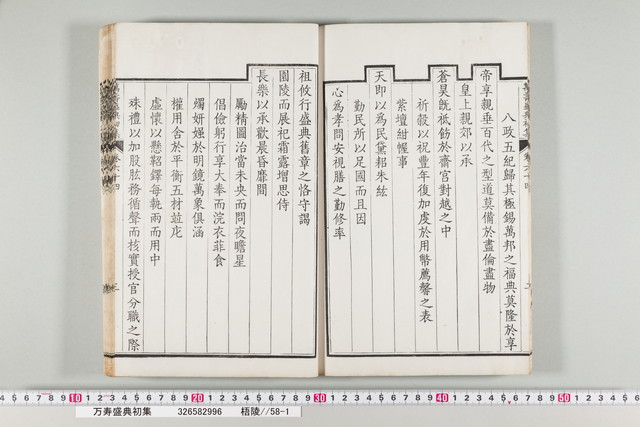 八政五紀歸其極錫萬邦之福典莫隆於享
帝享親垂百代之型道莫備於盡倫盡物
皇上親郊以承
蒼昊旣祗飭於齋宮對越之中
祈穀以祝豐年復加虔於用幣薦馨之表
紫壇紺幄事
天卽以爲民黛耜朱紘
勤民所以足國而且因
心爲孝問安視膳之勤修率
祖攸行盛典舊章之恪守謁
園陵而展祀霜露增思侍
長樂以承歡晨昏靡間
勵精圖治當未央而問夜瞻星
倡儉躬行享大奉而浣衣菲食
燭妍媸於明鏡萬象俱涵
權用舍於平衡五材並庀
虛懷以懸鞀鐸每執兩而用中
殊禮以加股肱務循聲而核實授官分職之際
10 20 30 40 50
万寿盛典初集 326582996 梧陵//58-1